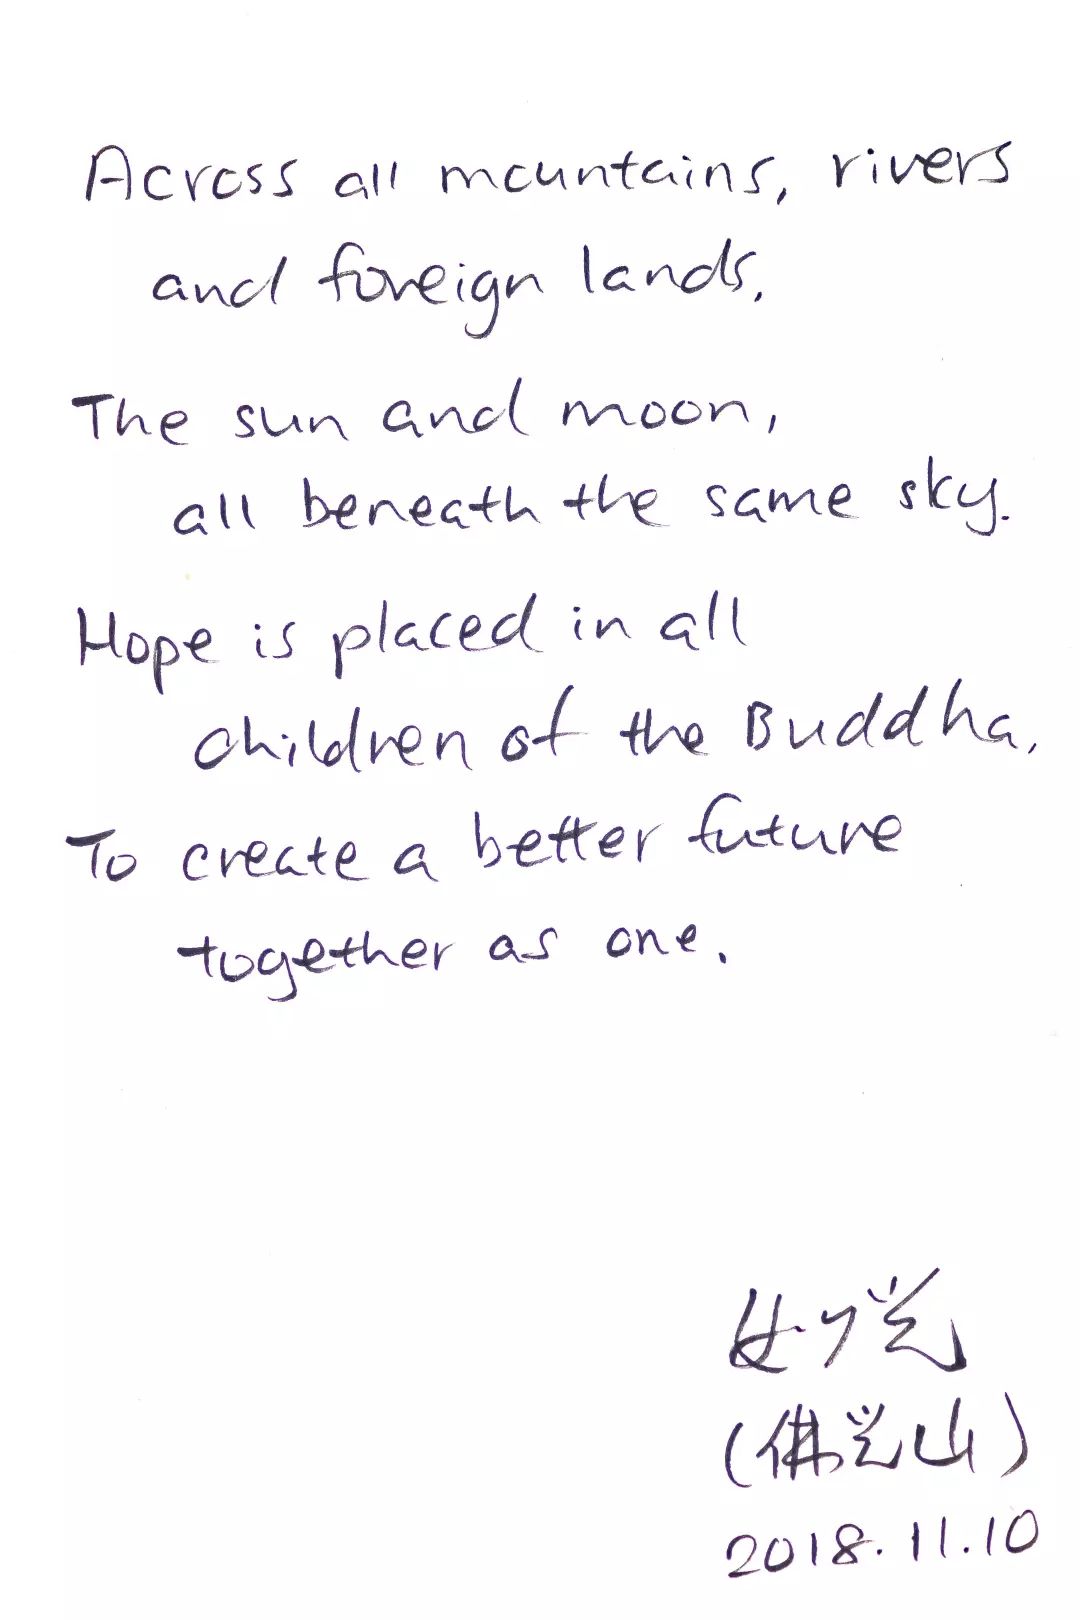 Across all mountains, rivers
and foreign lands.
The sun and moon,
all beneath the same sky.
Hope is placed in all
children of the Buddha,
To create a better future
together as one.
妙光
(佛光山)
2018.11.10